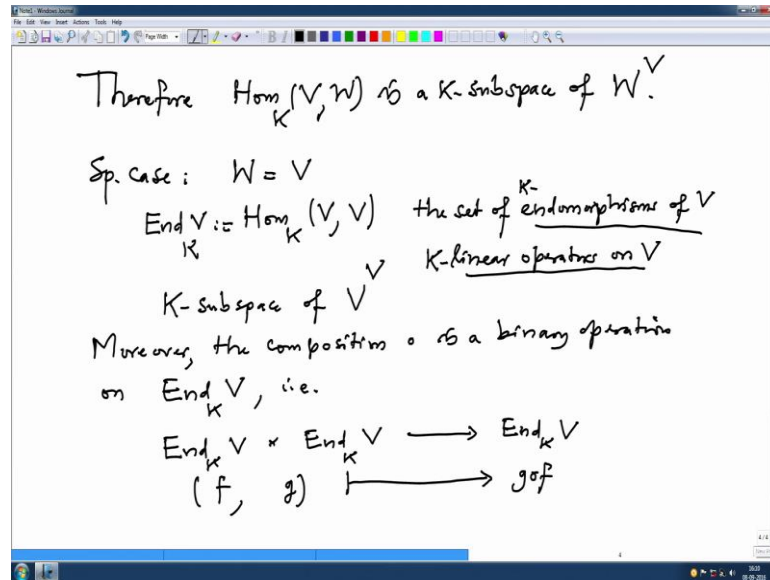 Note1 - Windows Journal
File Edit View Insert Actions Tools Help
Page Width
Therefore Hom_K(V,W) is a K-subspace of W^V.
Sp. case : W = V
End_K V := Hom_K(V, V) the set of K-endomorphisms of V
K-linear operators on V
K-subspace of V^V
Moreover, the composition ∘ is a binary operation
on End_K V, i.e.
End_K V × End_K V ⟶ End_K V
(f, g) ⟼ g∘f
4/4
4